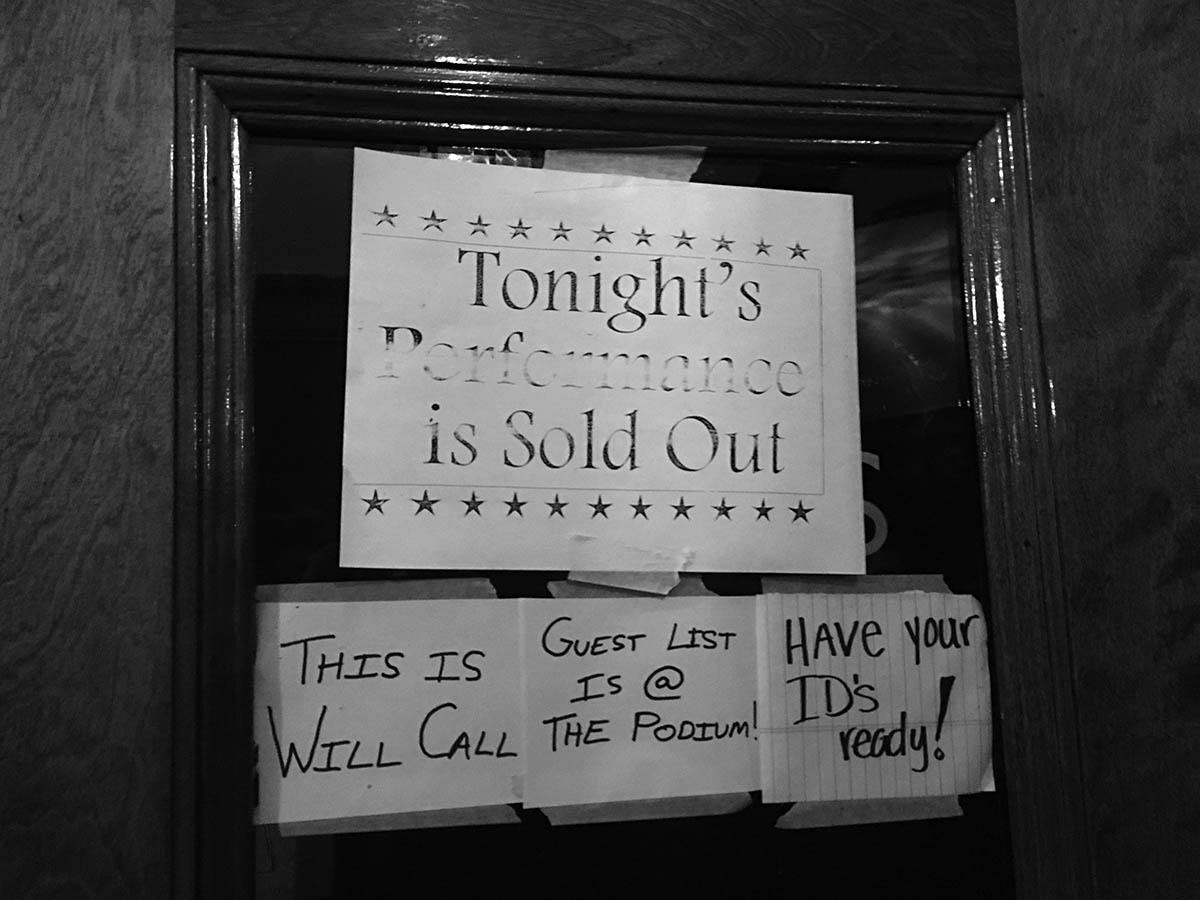 Tonight's
Performance
is Sold Out
THIS IS
WILL CALL
GUEST LIST
IS @
THE PODIUM!
HAVE your
ID's
ready!